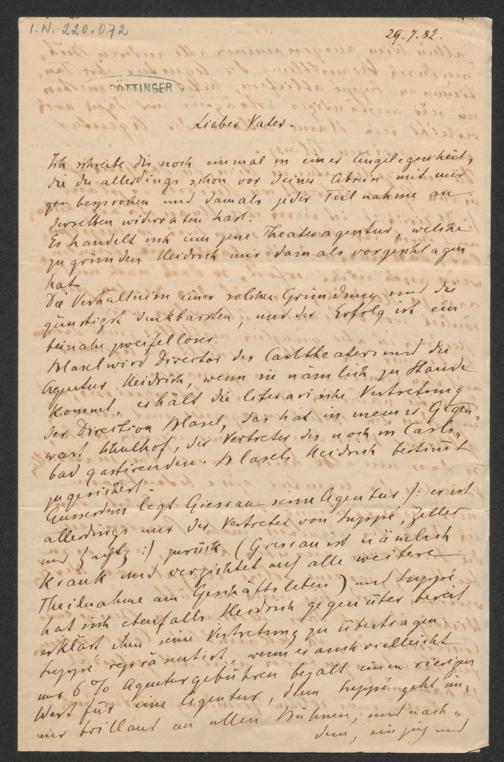 I.N. 220.072
29.7.82.
ÖTTINGER
Lieber Vater.
Ich schreibe dir noch einmal in einer Angelegenheit,
die du allerdings schon vor deiner Abreise mit mir
besprochen und damals jeder Teilnahme an
derselben widerraten hast.
Es handelt sich um jene Theateragentur, welche
zu gründen Heidrich mir damals vorgeschlagen
hat
Die Verhältnisse einer solchen Gründung sind die
günstigst denkbarsten, und der Erfolg ist ein
beinahe zweifelloser.
Blasel wird Director des Carltheaters und die
Agentur Heidrich, wenn sie nämlich zu Stande
kommt, erhält die literarische Vertretung
der Direction Blasel, das hat in meiner Gegen-
wart, der Vertreter des noch in Carls-
bad gastirenden Blasels Heidrich bestimmt
zugesichert.
Ausserdem legt Giessrau seine Agentur /: er ist
allerdings nur der Vertreter von Suppé, Zeller
und :/ zurück (Giessrau ist nämlich
krank und verzichtet auf alle weitere
Theilnahme am Geschäftsleben) und Suppé
hat sich ebenfalls Heidrich gegenüber bereit
erklärt ihm seine Vertretung zu übertragen
Suppé repräsentirt, wenn er auch vielleicht
nur 6 % Agentengebühren bezalt einen riesigen
Wert für eine Agentur, denn Suppé geht im-
mer brillant an allen Bühnen, und nach
dem, einzig und